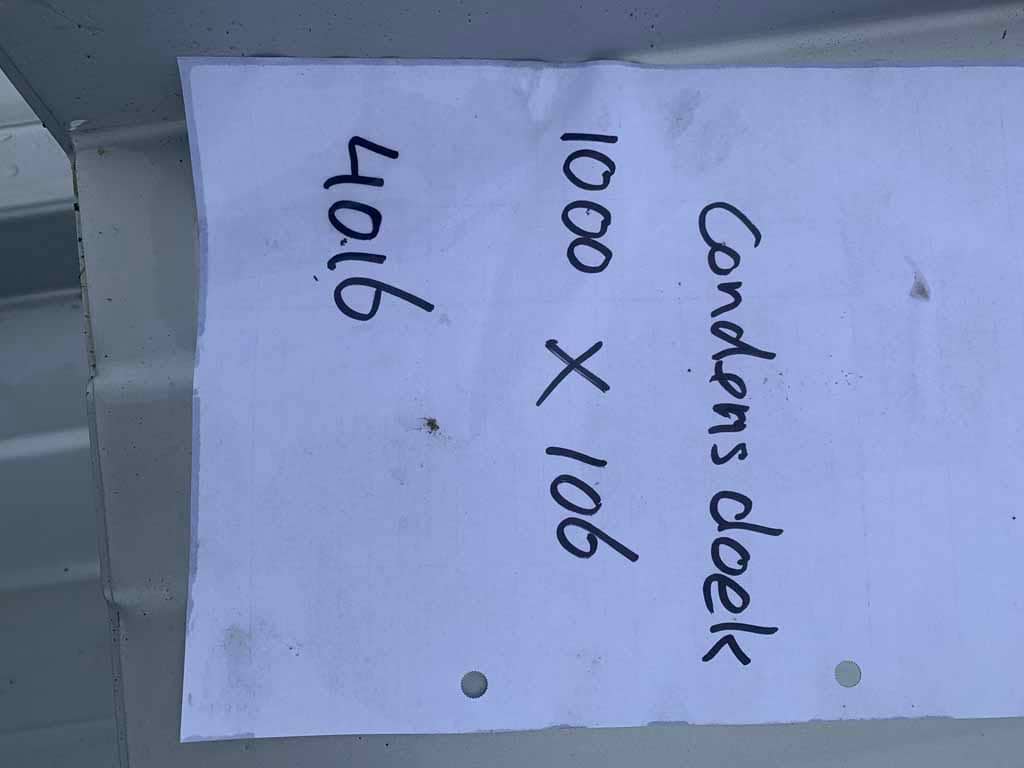 Condens doek
1000 X 106
40.16